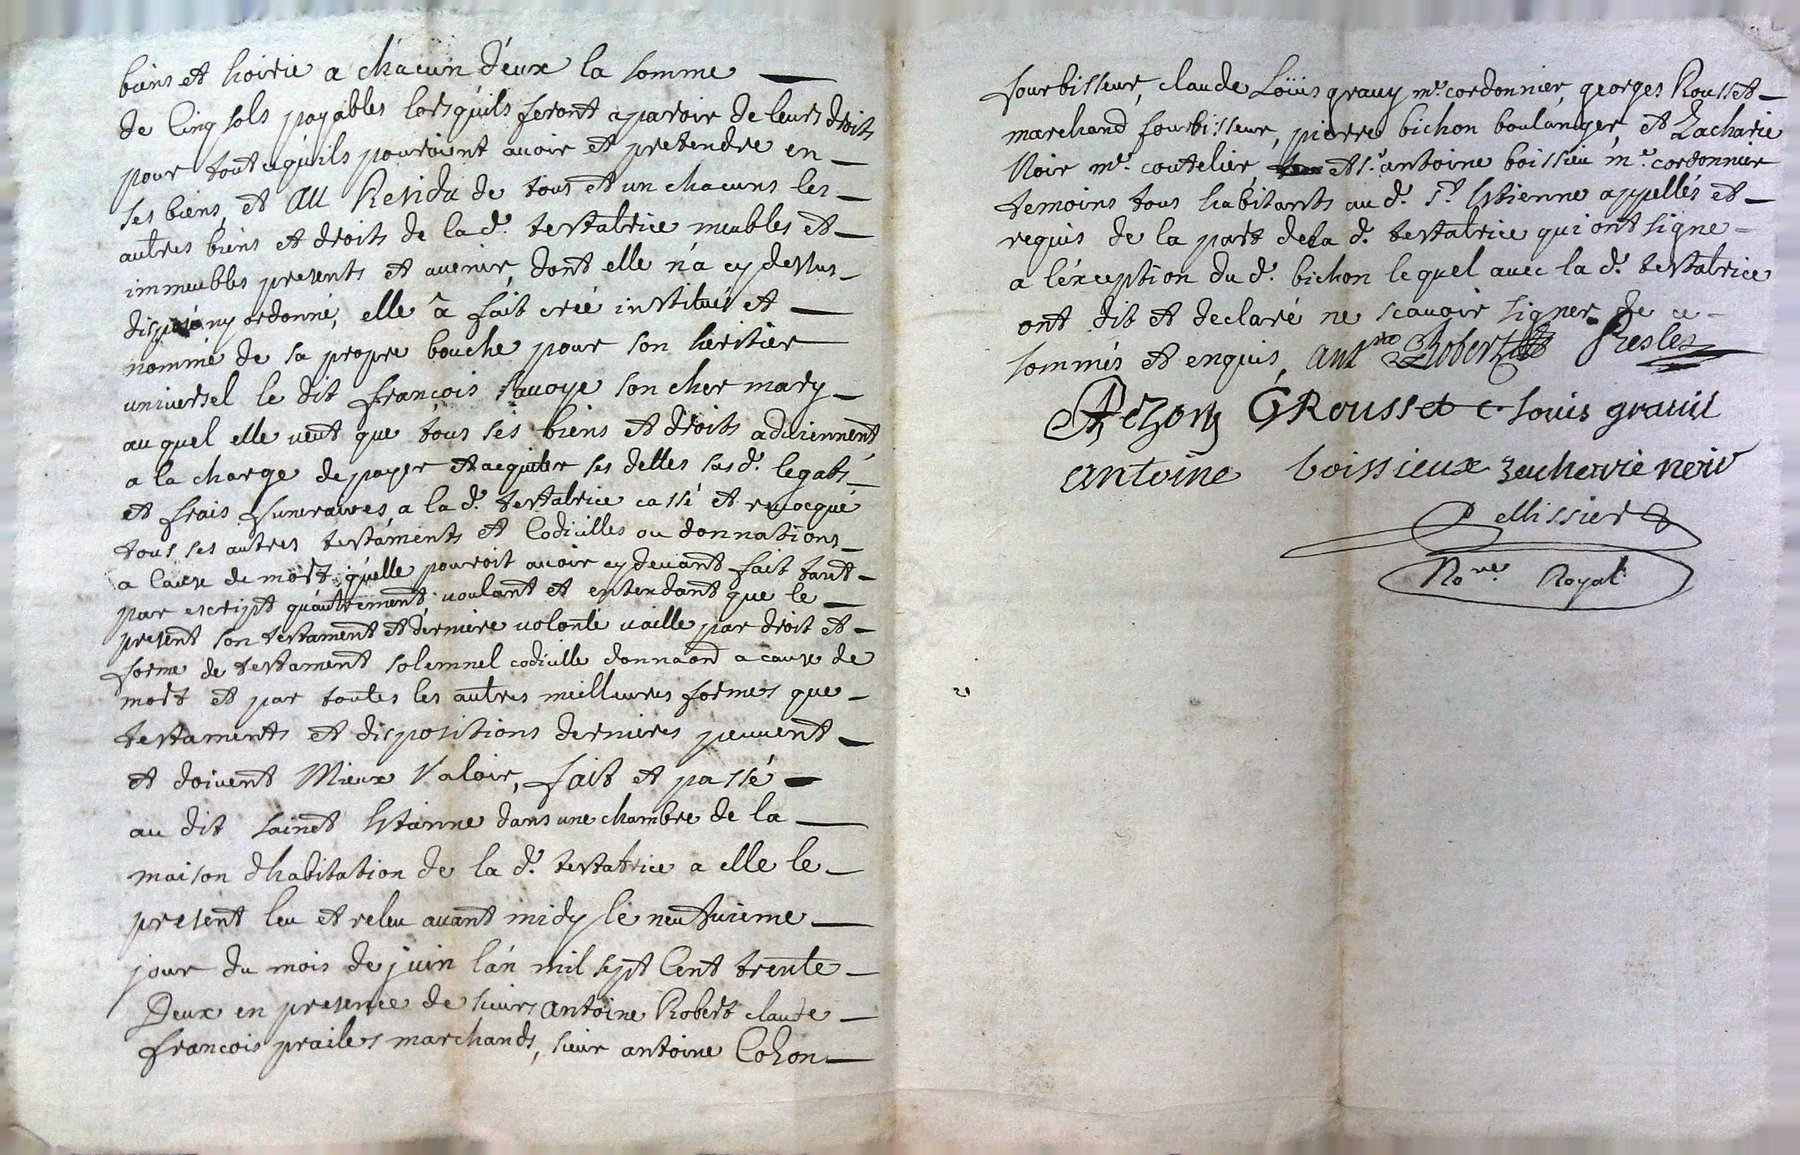 biens et hoirie a chacun d'eux la somme
de Cinq sols payables lorsquils feront aparoir de leurs droits
pour tout ce qu'ils pouroient avoir et pretendre en
ses biens, et AU Residu de tous et un chacuns les
autres biens et droits de la d.e testatrice meubles et
immeubles presents et avenir, dont elle n'a cy dessus
disposé ny ordonné, elle â fait creé institué et
nommé de sa propre bouche pour son heritier
universel le dit françois savoye son cher mary
auquel elle veut que tous ses biens et droits adviennent
a la charge de payer et acquiter ses dettes sesd. legats
et frais funeraires, a la d.e testatrice cassé et revocqué
tous ses autres testaments et Codicilles ou donnations
a cause de mort qu'elle pourroit avoir cy devant fait tant
par escript qu'autrement, voulant et entendant que le
present son testament et derniere volonté vaille par droit et
forme de testament solemnel codicille donnaõn a cause de
mort et par toutes les autres meilleures formes que
testaments et dispositions dernieres peuvent
et doivent Mieux Valoir, fait et passé
au dit sainct Estienne dans une chambre de la
maison d'habitation de la d.e testatrice a elle le
present leu et releu avant midy le neufvieme
jour du mois de juin l'an mil sept Cent trente
Deux en presence de sieurs antoine Robert claude
francois prailes marchands, sieur antoine Cohon
fourbisseur, claude Loüis grauy m.e cordonnier, georges Rousset
marchand fourbisseur, pierre bichon boulanger, et Zacharie
Noir m.e coutelier, et s.r antoine boissieu m.e cordonnier
temoins tous habitants au d. S.t Estienne appellés et
requis de la part de la d.e testatrice qui ont signe
a l'éxception du d. bichon lequel avec la d.e testatrice
ont dit et declaré ne scavoir signer de ce
sommés et enquis, Ant.ne Robert Presles
GRousset c. Louis grauil
antoine boissieux zacherie noir
Pellissier
No.re Royal